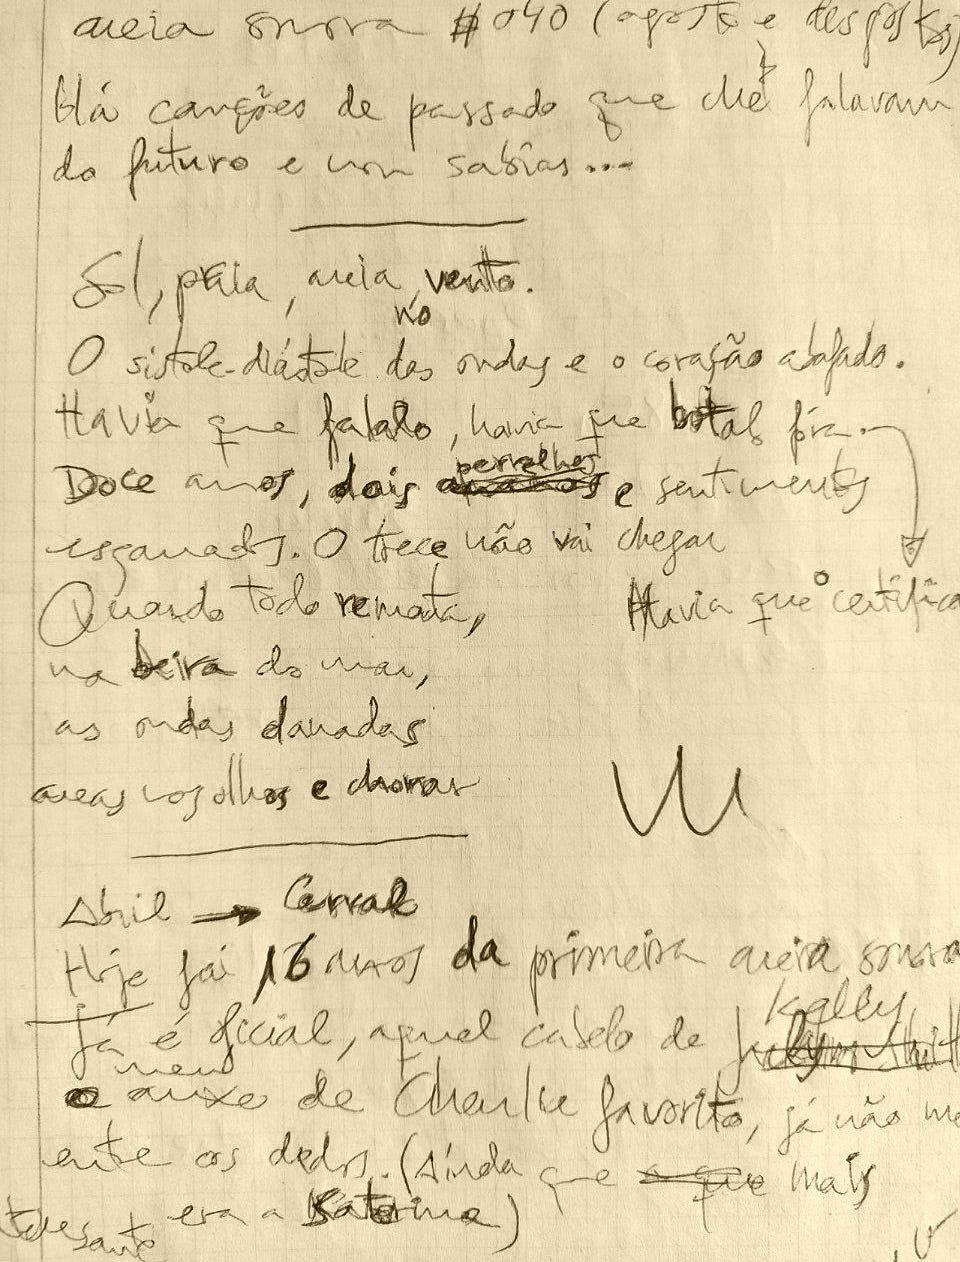 areia sonora #040 (agosto e desgostos)
Há canções de passado que che falavam
do futuro e non sabías...
Sol, praia, areia, vento.
no
O sístole-diástole das ondas e o coração abafado.
Havia que falalo, havia que botalo fóra.
Doce anos, dois perralhos e sentimentos
esganados. O trece não vai chegar
Havia que o certifica
Quando todo remata,
na beira do mar,
as ondas danadas
areas nos olhos e chorar
Abril → Cerralo
Hoje fai 16 anos da primeira areia sonora
Já é oficial, aquel cabelo de Kelly
o meu anxo de Charlie favorito, já não me
entre os dedos. (Ainda que mais
era a Sabrina)